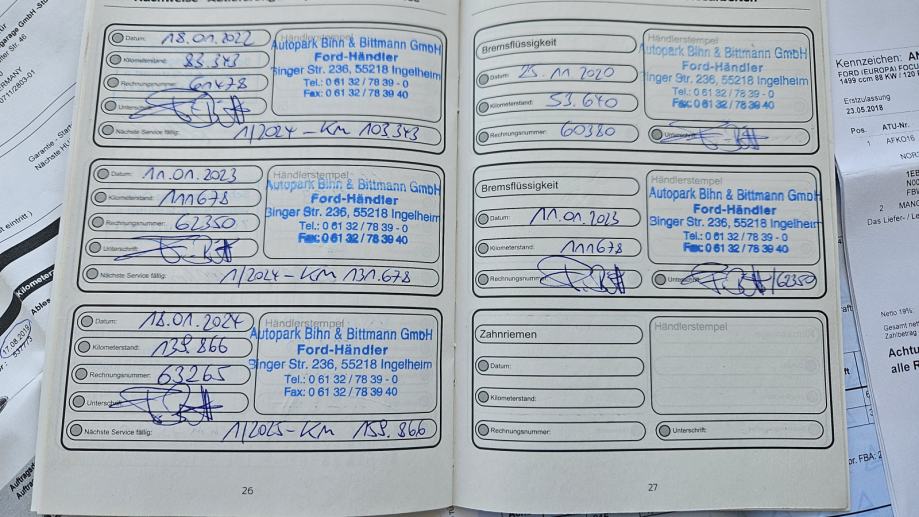 Datum: 18.01.2022
Kilometerstand: 83.343
Rechnungsnummer: 61478
Unterschrift
Nächste Service fällig: 1/2024 - KM 103.343
Händlerstempel
Autopark Bihn & Bittmann GmbH
Ford-Händler
Binger Str. 236, 55218 Ingelheim
Tel.: 0 61 32 / 78 39 - 0
Fax: 0 61 32 / 78 39 40
Datum: 11.01.2023
Kilometerstand: 111678
Rechnungsnummer: 62350
Unterschrift
Nächste Service fällig: 1/2024 - KM 131.678
Händlerstempel
Autopark Bihn & Bittmann GmbH
Ford-Händler
Binger Str. 236, 55218 Ingelheim
Tel.: 0 61 32 / 78 39 - 0
Fax: 0 61 32 / 78 39 40
Datum: 18.01.2024
Kilometerstand: 139.866
Rechnungsnummer: 63265
Unterschrift
Nächste Service fällig: 1/2025 - KM 159.866
Händlerstempel
Autopark Bihn & Bittmann GmbH
Ford-Händler
Binger Str. 236, 55218 Ingelheim
Tel.: 0 61 32 / 78 39 - 0
Fax: 0 61 32 / 78 39 40
26
Bremsflüssigkeit
Datum: 25.11.2020
Kilometerstand: 53.640
Rechnungsnummer: 60380
Unterschrift
Händlerstempel
Autopark Bihn & Bittmann GmbH
Ford-Händler
Binger Str. 236, 55218 Ingelheim
Tel.: 0 61 32 / 78 39 - 0
Fax: 0 61 32 / 78 39 40
Bremsflüssigkeit
Datum: 11.01.2023
Kilometerstand: 111678
Rechnungsnummer
Unterschrift /62350
Händlerstempel
Autopark Bihn & Bittmann GmbH
Ford-Händler
Binger Str. 236, 55218 Ingelheim
Tel.: 0 61 32 / 78 39 - 0
Fax: 0 61 32 / 78 39 40
Zahnriemen
Datum:
Kilometerstand:
Rechnungsnummer:
Unterschrift:
Händlerstempel
27
Kennzeichen:
FORD (EUROPA) FOCU
1499 ccm 88 KW / 120
Erstzulassung
23.05.2018
Pos. ATU-Nr.
1 AFKO16
2 MANO
Das Liefer- / L
Netto 19%
Gesamt net
Zahlbetrag
Achtu
alle R